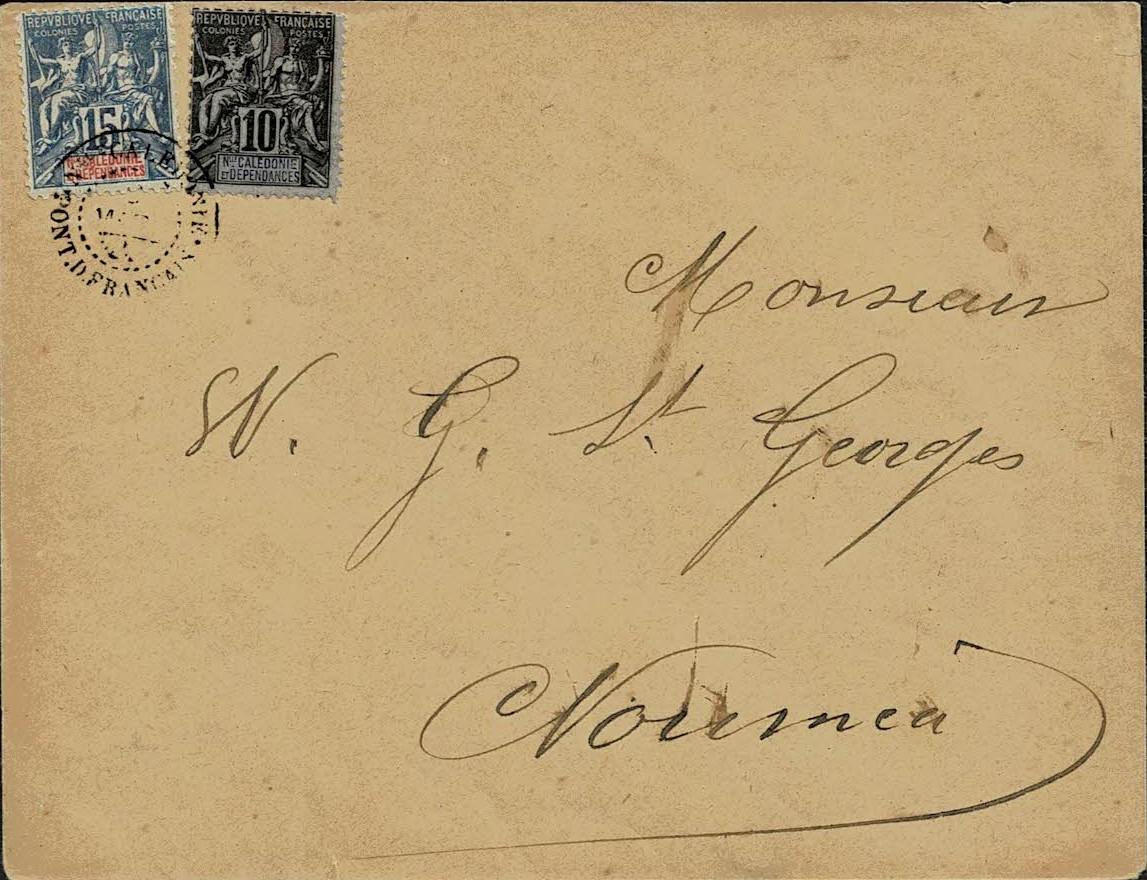 REPVBLIQVE FRANÇAISE
COLONIES POSTES
15
Nlle CALÉDONIE
ET DÉPENDANCES
REPVBLIQVE FRANÇAISE
COLONIES POSTES
10
Nlle CALÉDONIE
ET DÉPENDANCES
PONT.D.FRANÇAIS
Monsieur
W. G. St. Georges
Nouméa